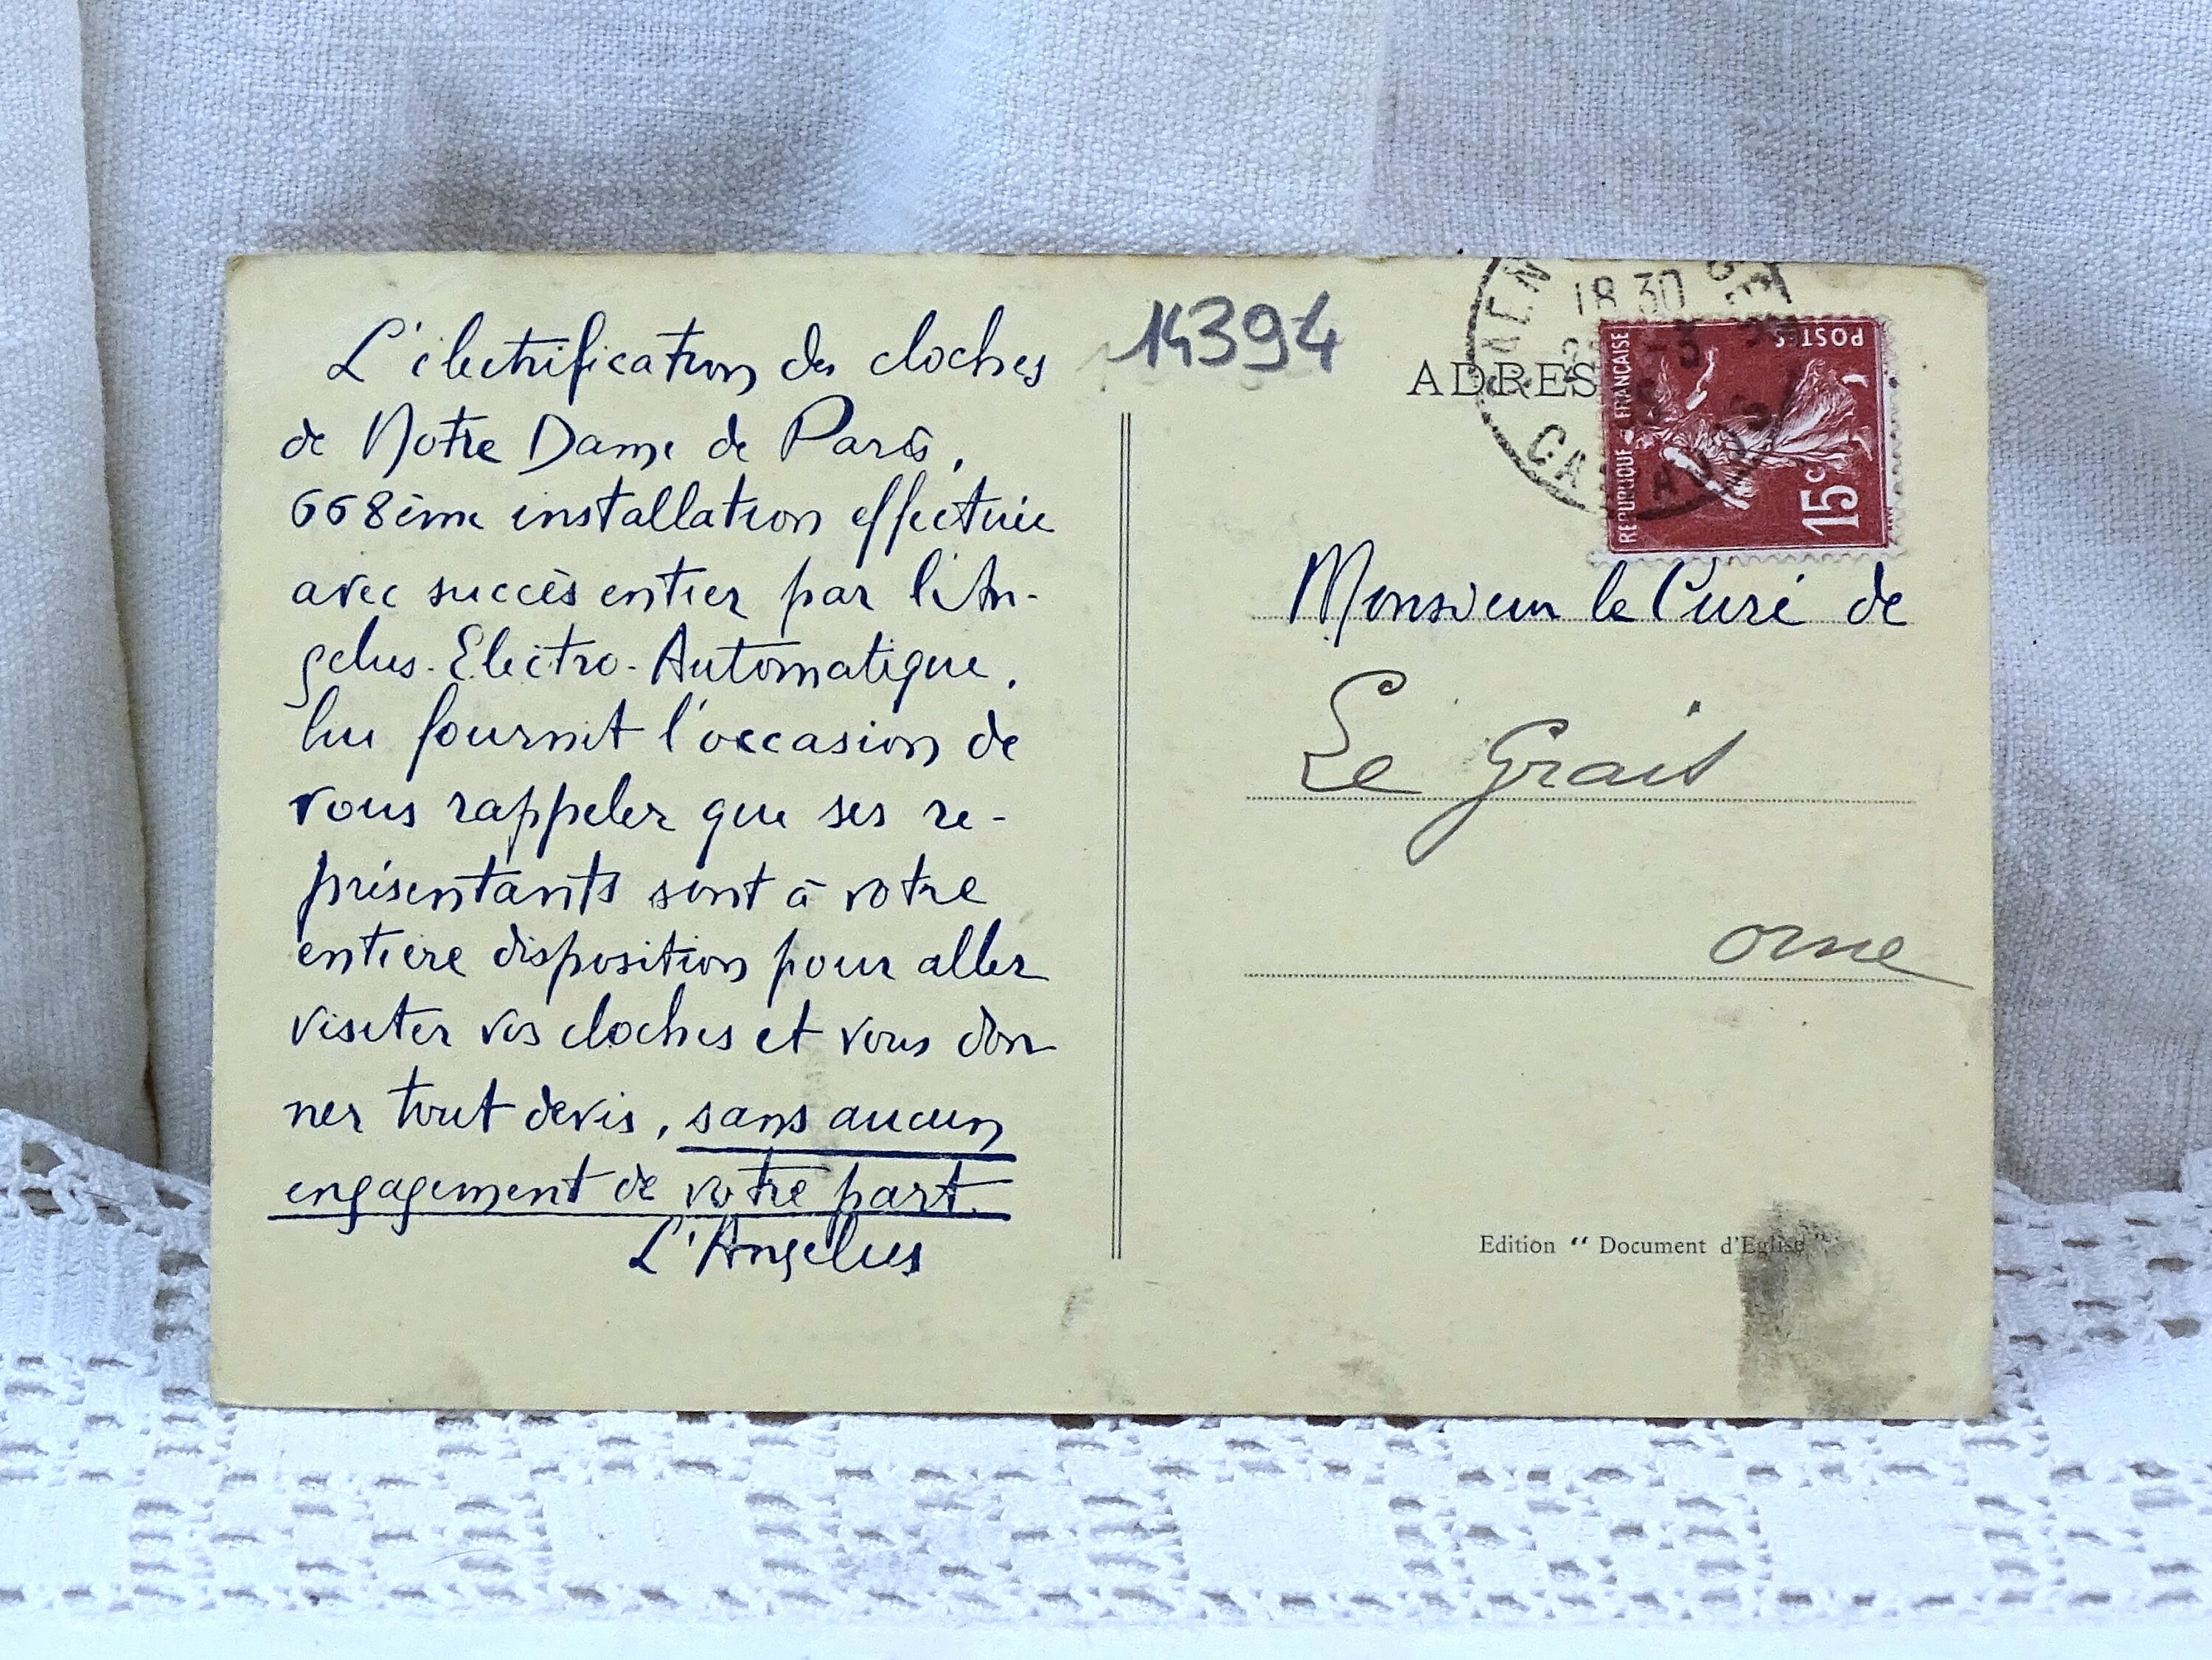 L'électrification des cloches
de Notre Dame de Paris,
668ème installation effectuée
avec succès entier par l'An-
gelus-Electro-Automatique,
lui fournit l'occasion de
vous rappeler que ses re-
présentants sont à votre
entière disposition pour aller
visiter vos cloches et vous don
ner tout devis, sans aucun
engagement de votre part.
L'Angelus
14394
ADRES
18 30
CA
REPUBLIQUE FRANÇAISE
POSTES
15c
Monsieur le Curé de
Le Grais
Orne
Edition “ Document d'Eglise ”